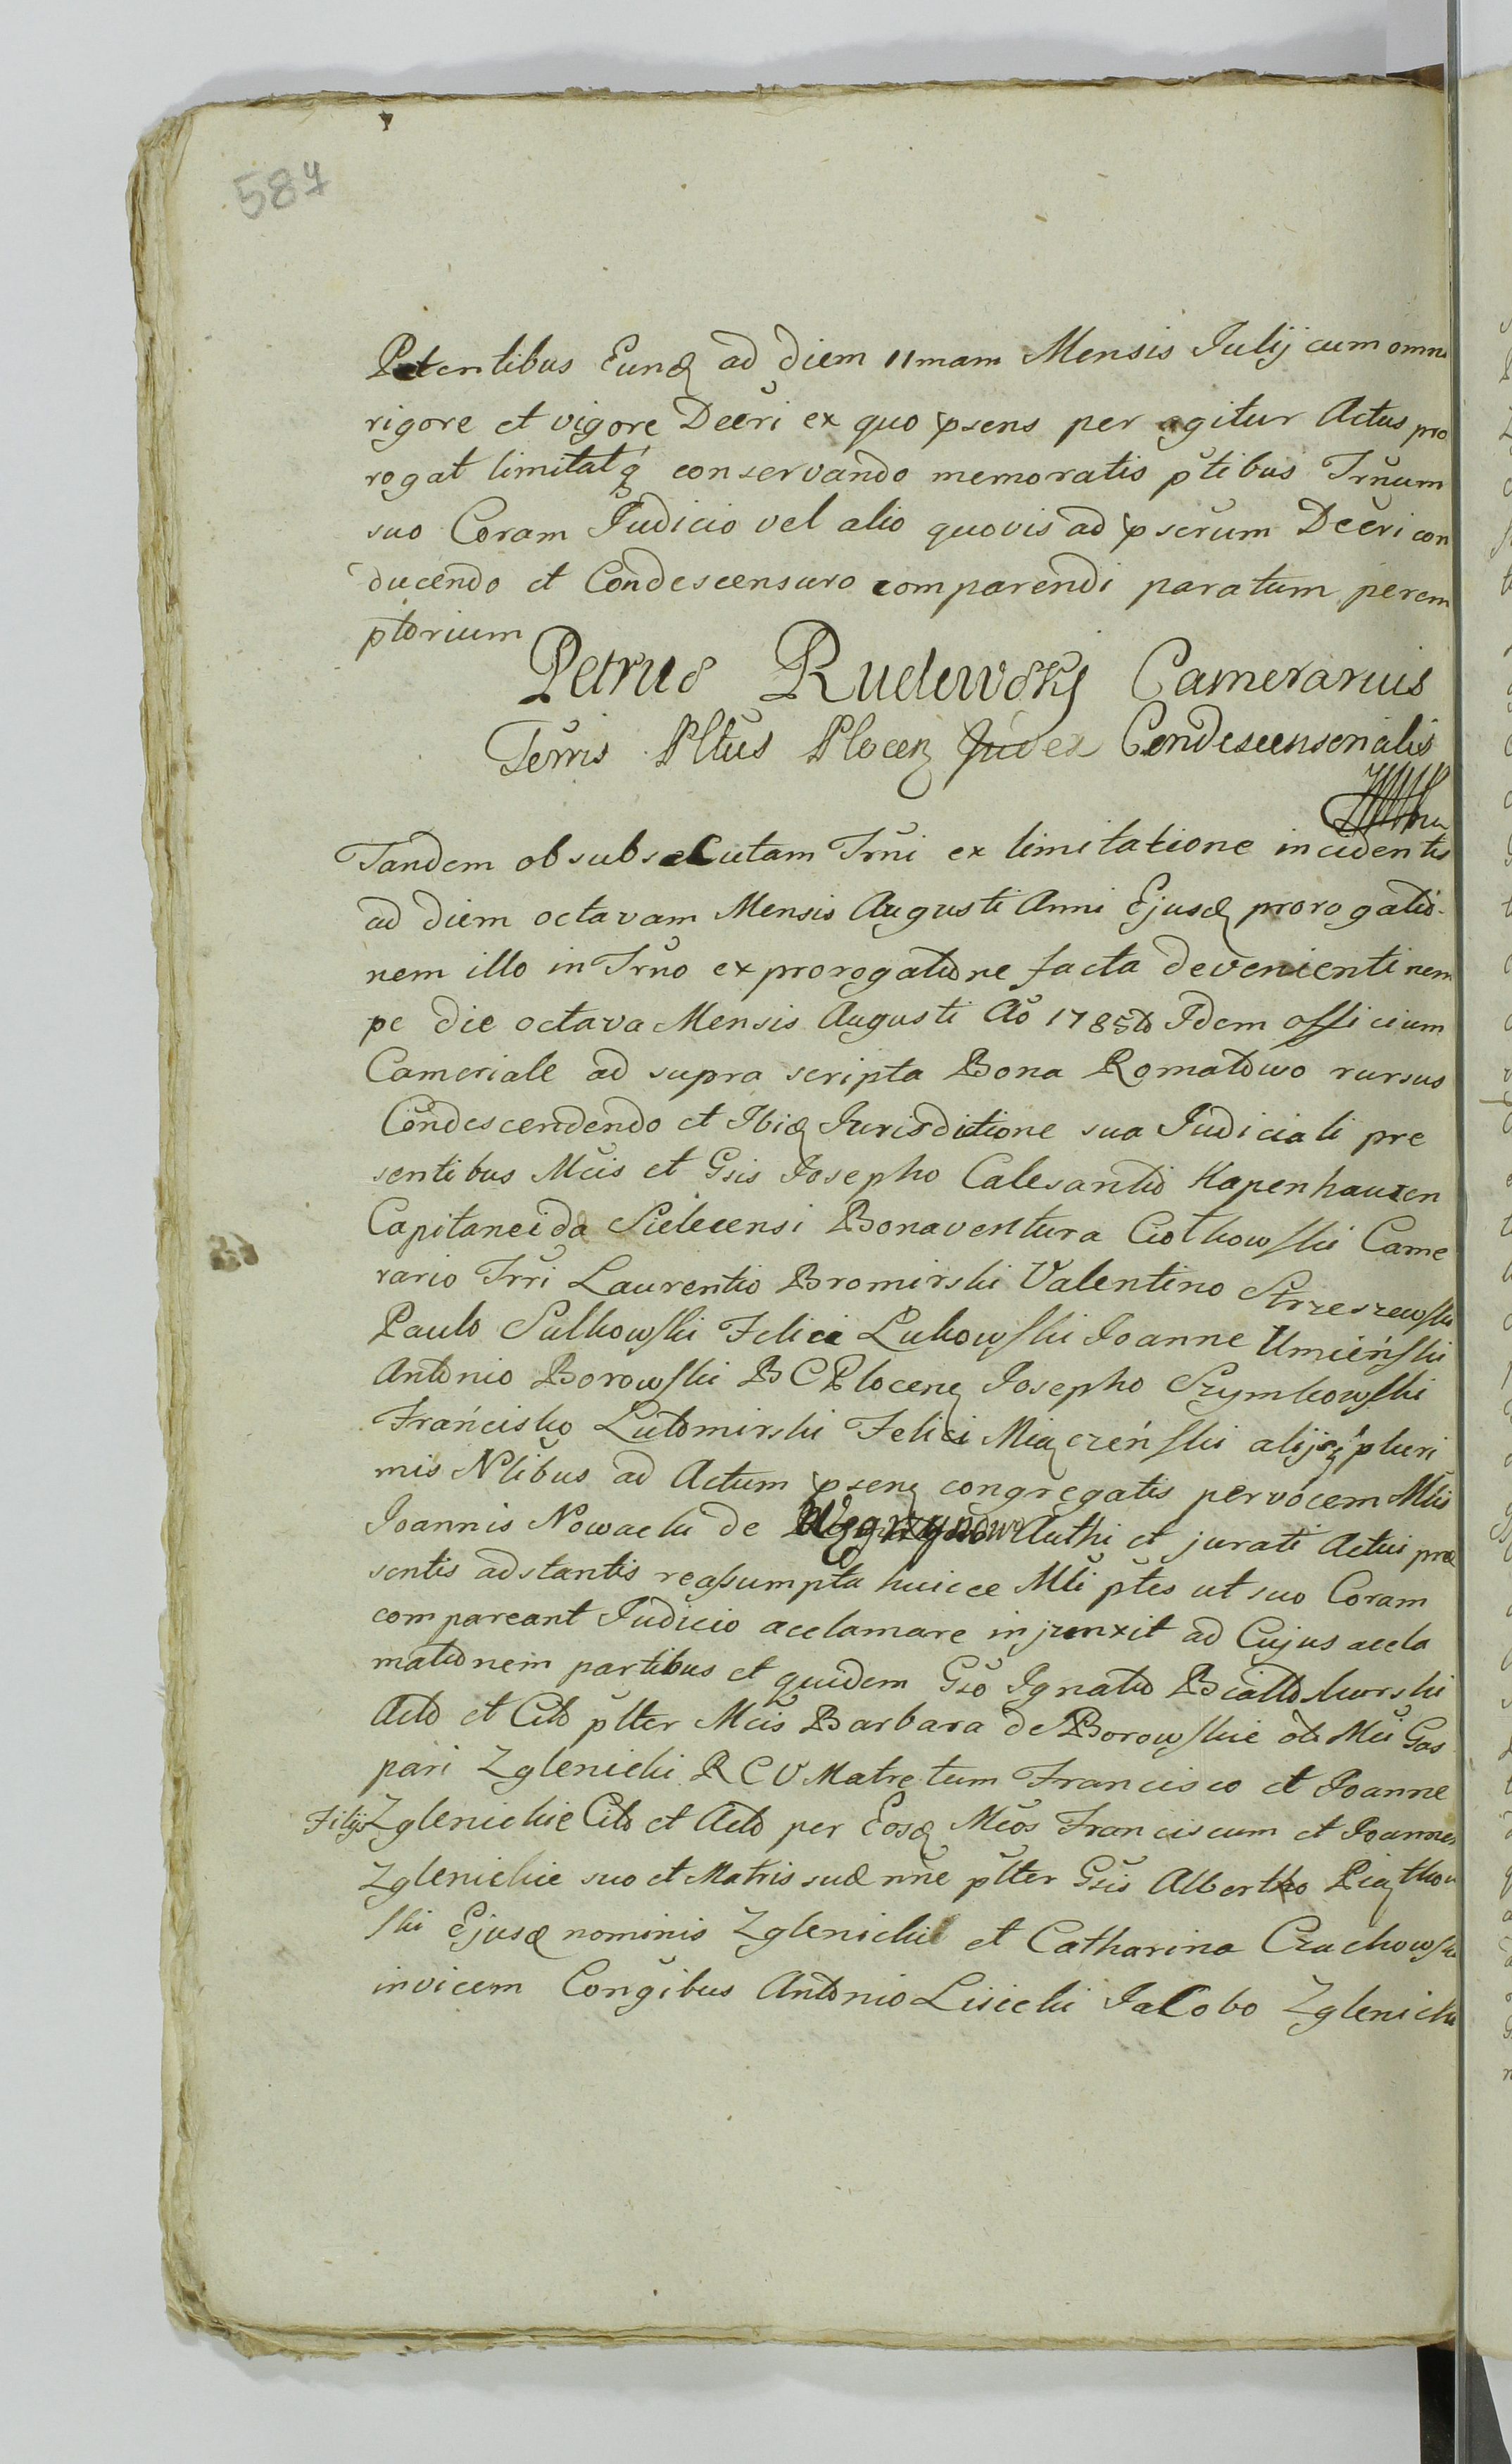 587
Petentibus Eund ad diem 11mam Mensis Julij cum omni
rigore et vigore Decri ex quo psens per agitur Actus pro
rogat limitatq conservando memoratis ptibus Trnum
suo Coram Judicio vel alio quovis ad pscrum Decri con
ducendo et Condescensuro comparendi paratum perem
ptorium
Petrus Rudowskj Camerarius
Terris Pltus Plocen Judex Condescensorialis
Tandem ob subsecutam Trni ex limitatione incidentis
ad diem octavam Mensis Augusti Anni Ejusd prorogatio
nem illo in Trno ex prorogatione facta devenienti nem
pe die octava Mensis Augusti Ao 1785to Idem officium
Cameriale ad supra scripta Bona Romatowo rursus
Condescendendo et Ibid Jurisdictione sua Judiciali pre
sentibus Mcis et Gsis Josepho Calesantio Kapenhauzen
Capitaneida Sielecensi Bonaventura Ciołkowski Came
rario Trri Laurentio Bromirski Valentino Strzeszewski
Paulo Sulkowski Felici Lukowski Joanne Umieński
Antonio Borowski BCPlocenz Josepho Szymkowski
Francisko Lutomirski Felici Miączeński alijsq pluri
mis Nlibus ad Actum psenz congregatis per vocem Mlis
Joannis Nowacki de Węgrzynowo Authi et jurati Actui præ
sentis adstantis reassumpta huicce Mli ptes ut suo Coram
compareant Judicio acclamare injunxit ad Cujus accla
mationem partibus et quidem Gso Ignatio Białoskurski
Acto et Cito plter Mcis Barbara de Borowskie oli Mci Gas
pari Zglenicki RCV Matre tum Francisco et Joanne
Filijs Zglenickie Cito et Acto per Eosd Mcos Franciscum et Joannem
Zglenickie suo et Matris suæ nne plter Gsis Albertho Piątkow
ski Ejusd nominis Zglenicki et Catharina Czachowska
invicem Congibus Antonio Lisicki Jacobo Zglenicki